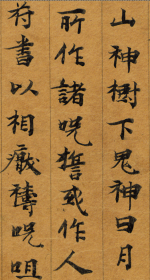 山神樹下鬼神日月
所作諸呪誓或作人
符書以相厭禱呪咀